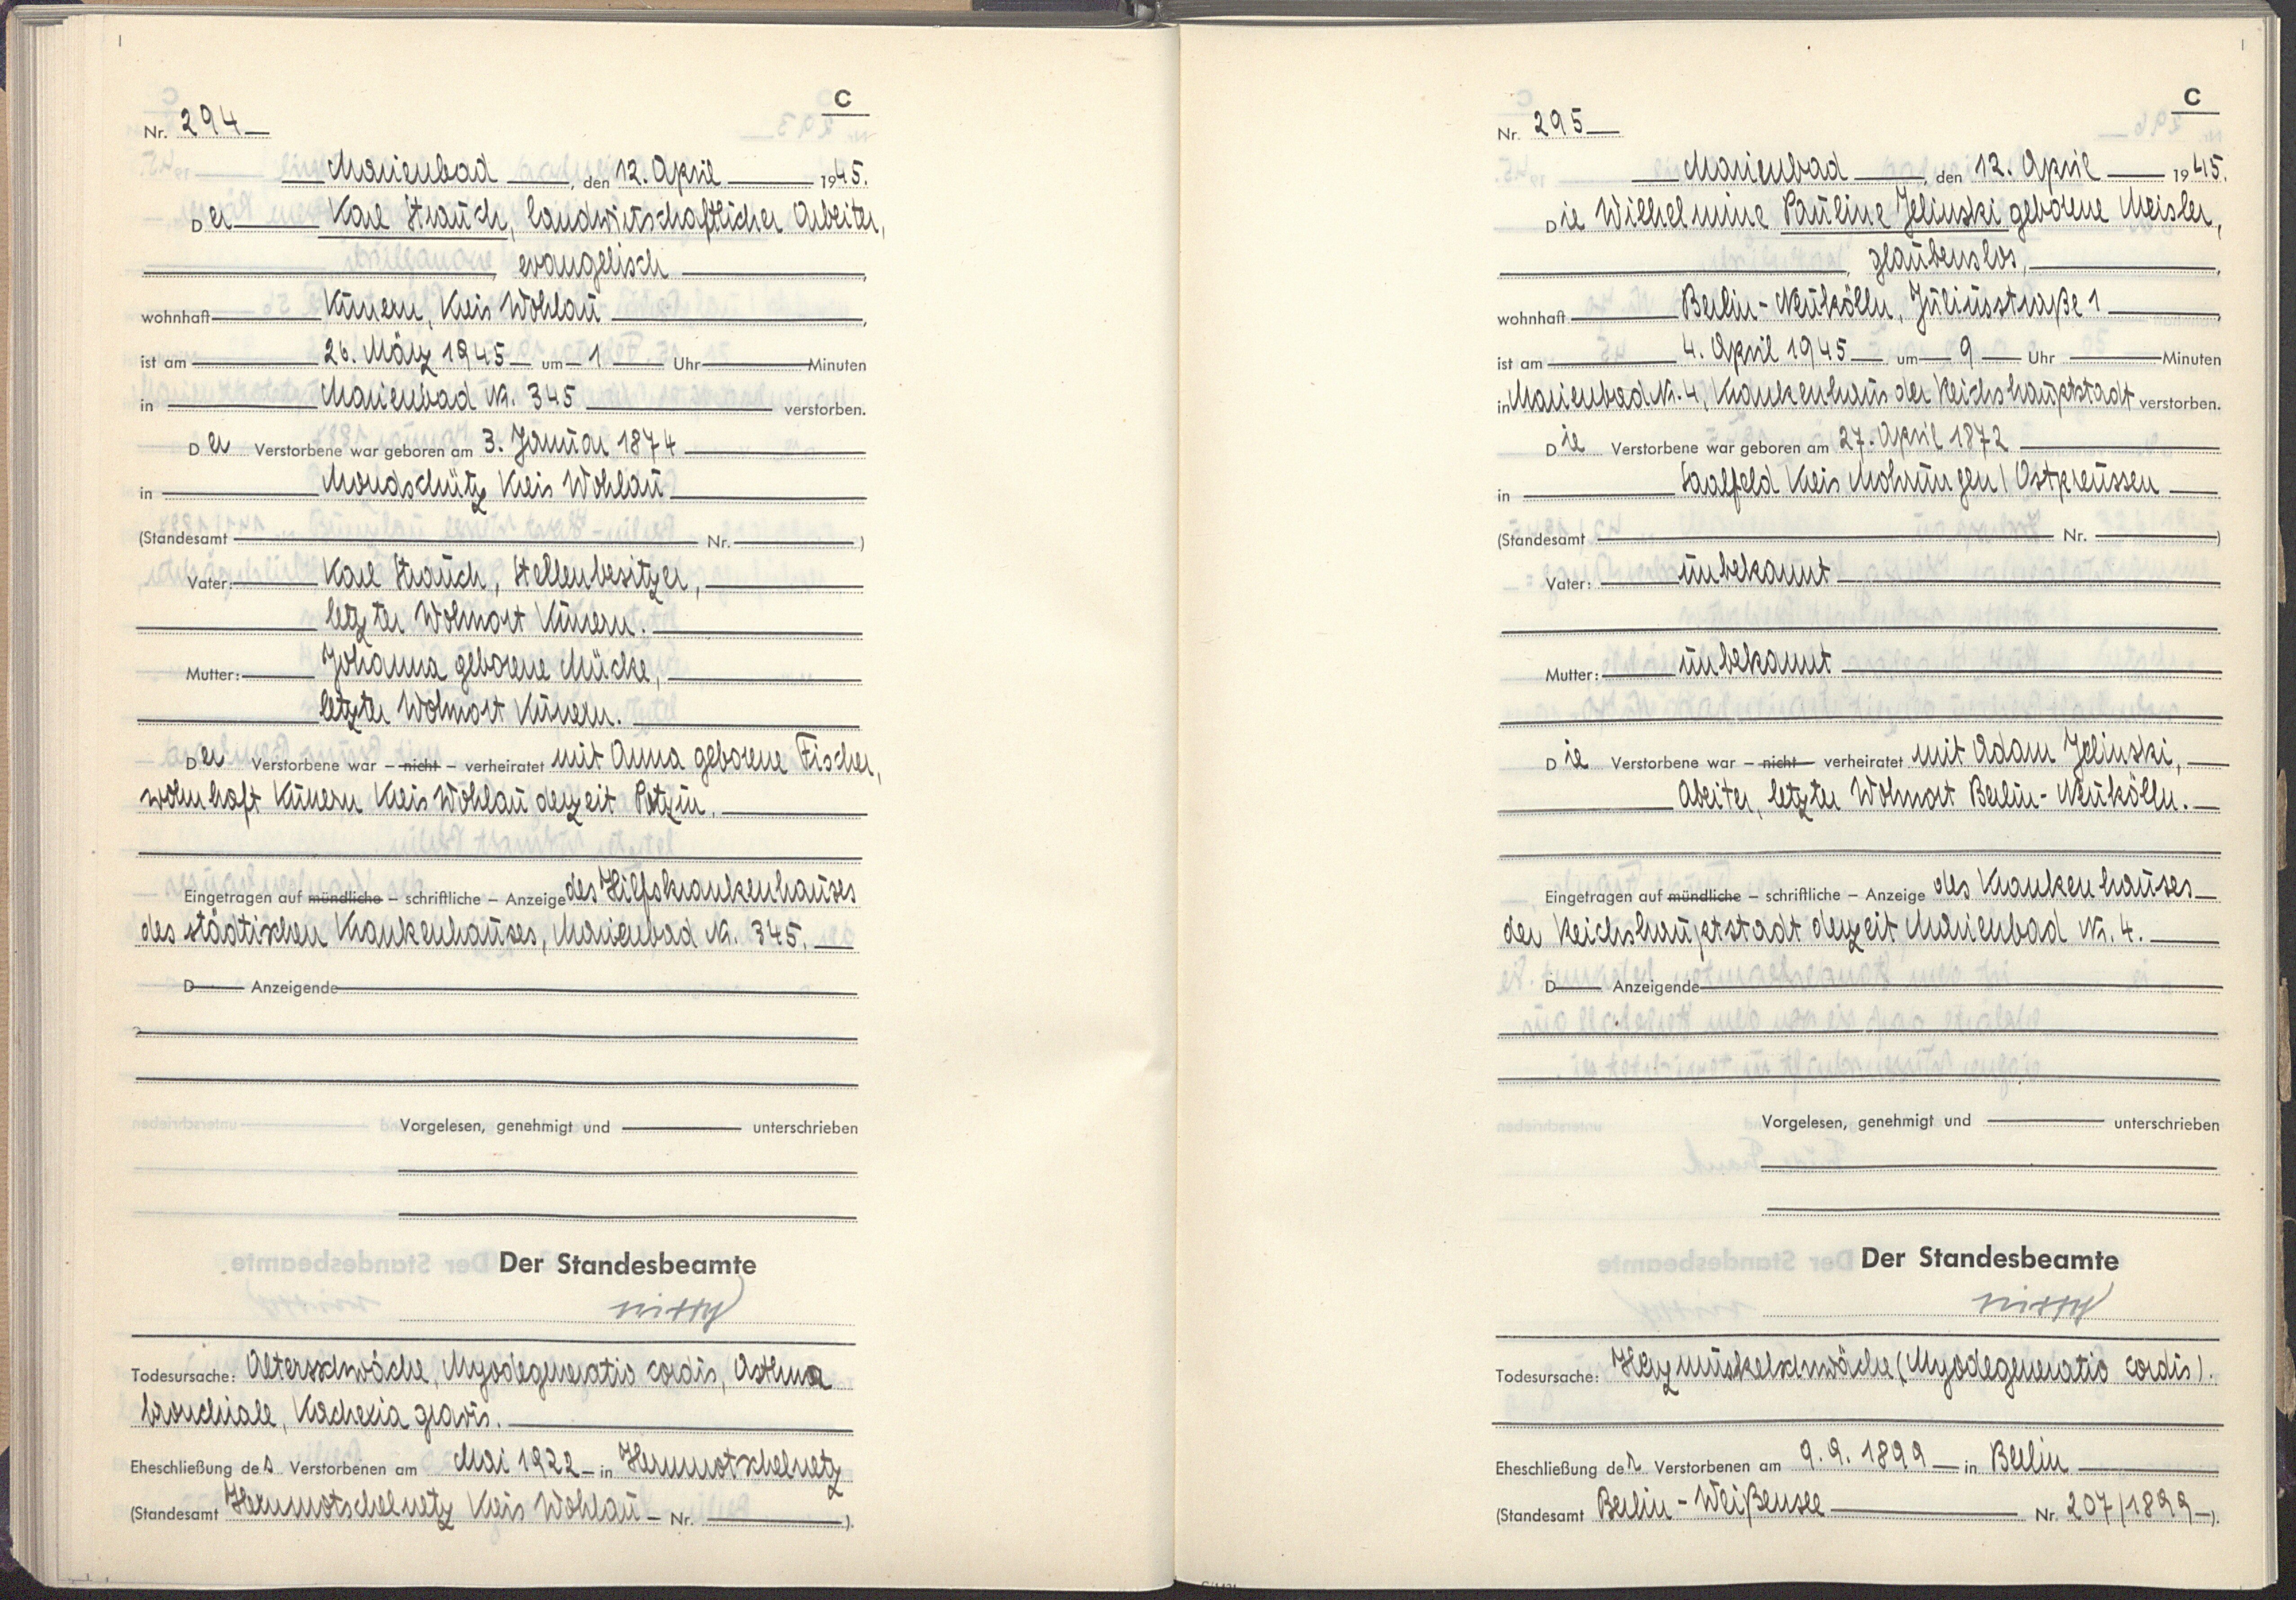 C
Nr. 294
Marienbad, den 12. April 1945.
Der Karl Strauch, landwirtschaftlicher Arbeiter,
evangelisch,
wohnhaft Kunern, Kreis Wohlau,
ist am 26. März 1945 um 1 Uhr Minuten
in Marienbad Nr. 345 verstorben.
Der Verstorbene war geboren am 3. Januar 1874
in Mondschütz Kreis Wohlau
(Standesamt Nr. )
Vater: Karl Strauch, Stellenbesitzer,
letzter Wohnort Kunern.
Mutter: Johanna geborene Mücke,
letzter Wohnort Kunern.
Der Verstorbene war – nicht – verheiratet mit Anna geborene Fischer,
wohnhaft Kunern Kreis Wohlau derzeit Potzin.
Eingetragen auf mündliche – schriftliche – Anzeige des Hilfskrankenhauses
des städtischen Krankenhauses, Marienbad Nr. 345.
D Anzeigende
Vorgelesen, genehmigt und unterschrieben
Der Standesbeamte
Todesursache: Altersschwäche, Myodegeneratio cordis, Asthma
bronchiale, Kachexia gravis.
Eheschließung des Verstorbenen am Mai 1922 in Herrnmotschelnetz
(Standesamt Herrnmotschelnetz Kreis Wohlau Nr. ).
C
Nr. 295
Marienbad, den 12. April 1945.
Die Wilhelmine Pauline Jelinski geborene Meisler,
glaubenslos,
wohnhaft Berlin-Neukölln, Juliusstraße 1
ist am 4. April 1945 um 9 Uhr Minuten
in Marienbad Nr. 4, Krankenhaus der Reichshauptstadt verstorben.
Die Verstorbene war geboren am 27. April 1872
in Saalfeld Kreis Mohrungen / Ostpreussen
(Standesamt Nr. )
Vater: unbekannt
Mutter: unbekannt
Die Verstorbene war – nicht – verheiratet mit Adam Jelinski,
Abeiter, letzter Wohnort Berlin-Neukölln.
Eingetragen auf mündliche – schriftliche – Anzeige des Krankenhauses
der Reichshauptstadt derzeit Marienbad Nr. 4.
D Anzeigende
Vorgelesen, genehmigt und unterschrieben
Der Standesbeamte
Todesursache: Herzmuskelschwäche (Myodegeneratio cordis).
Eheschließung der Verstorbenen am 9.9.1899 in Berlin
(Standesamt Berlin-Weißensee Nr. 207/1899).